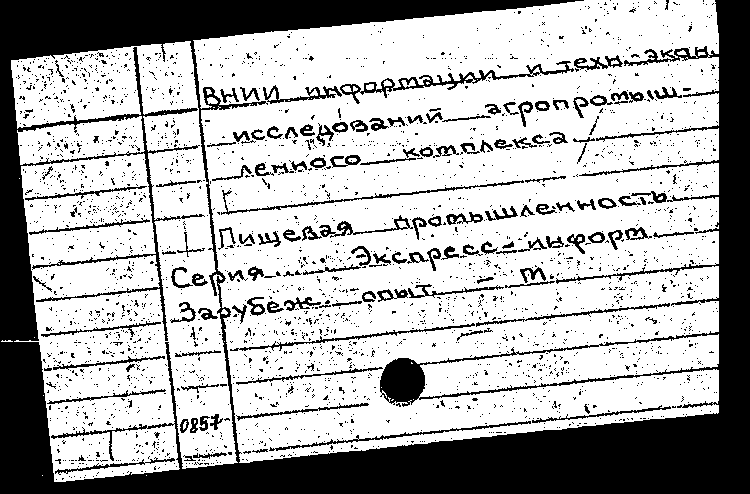 ВНИИ информации и техн.-экон.
исследований агропромыш-
ленного комплекса
Пищевая промышленность.
Серия..... Экспресс-информ.
Зарубеж. опыт. – М.
0857